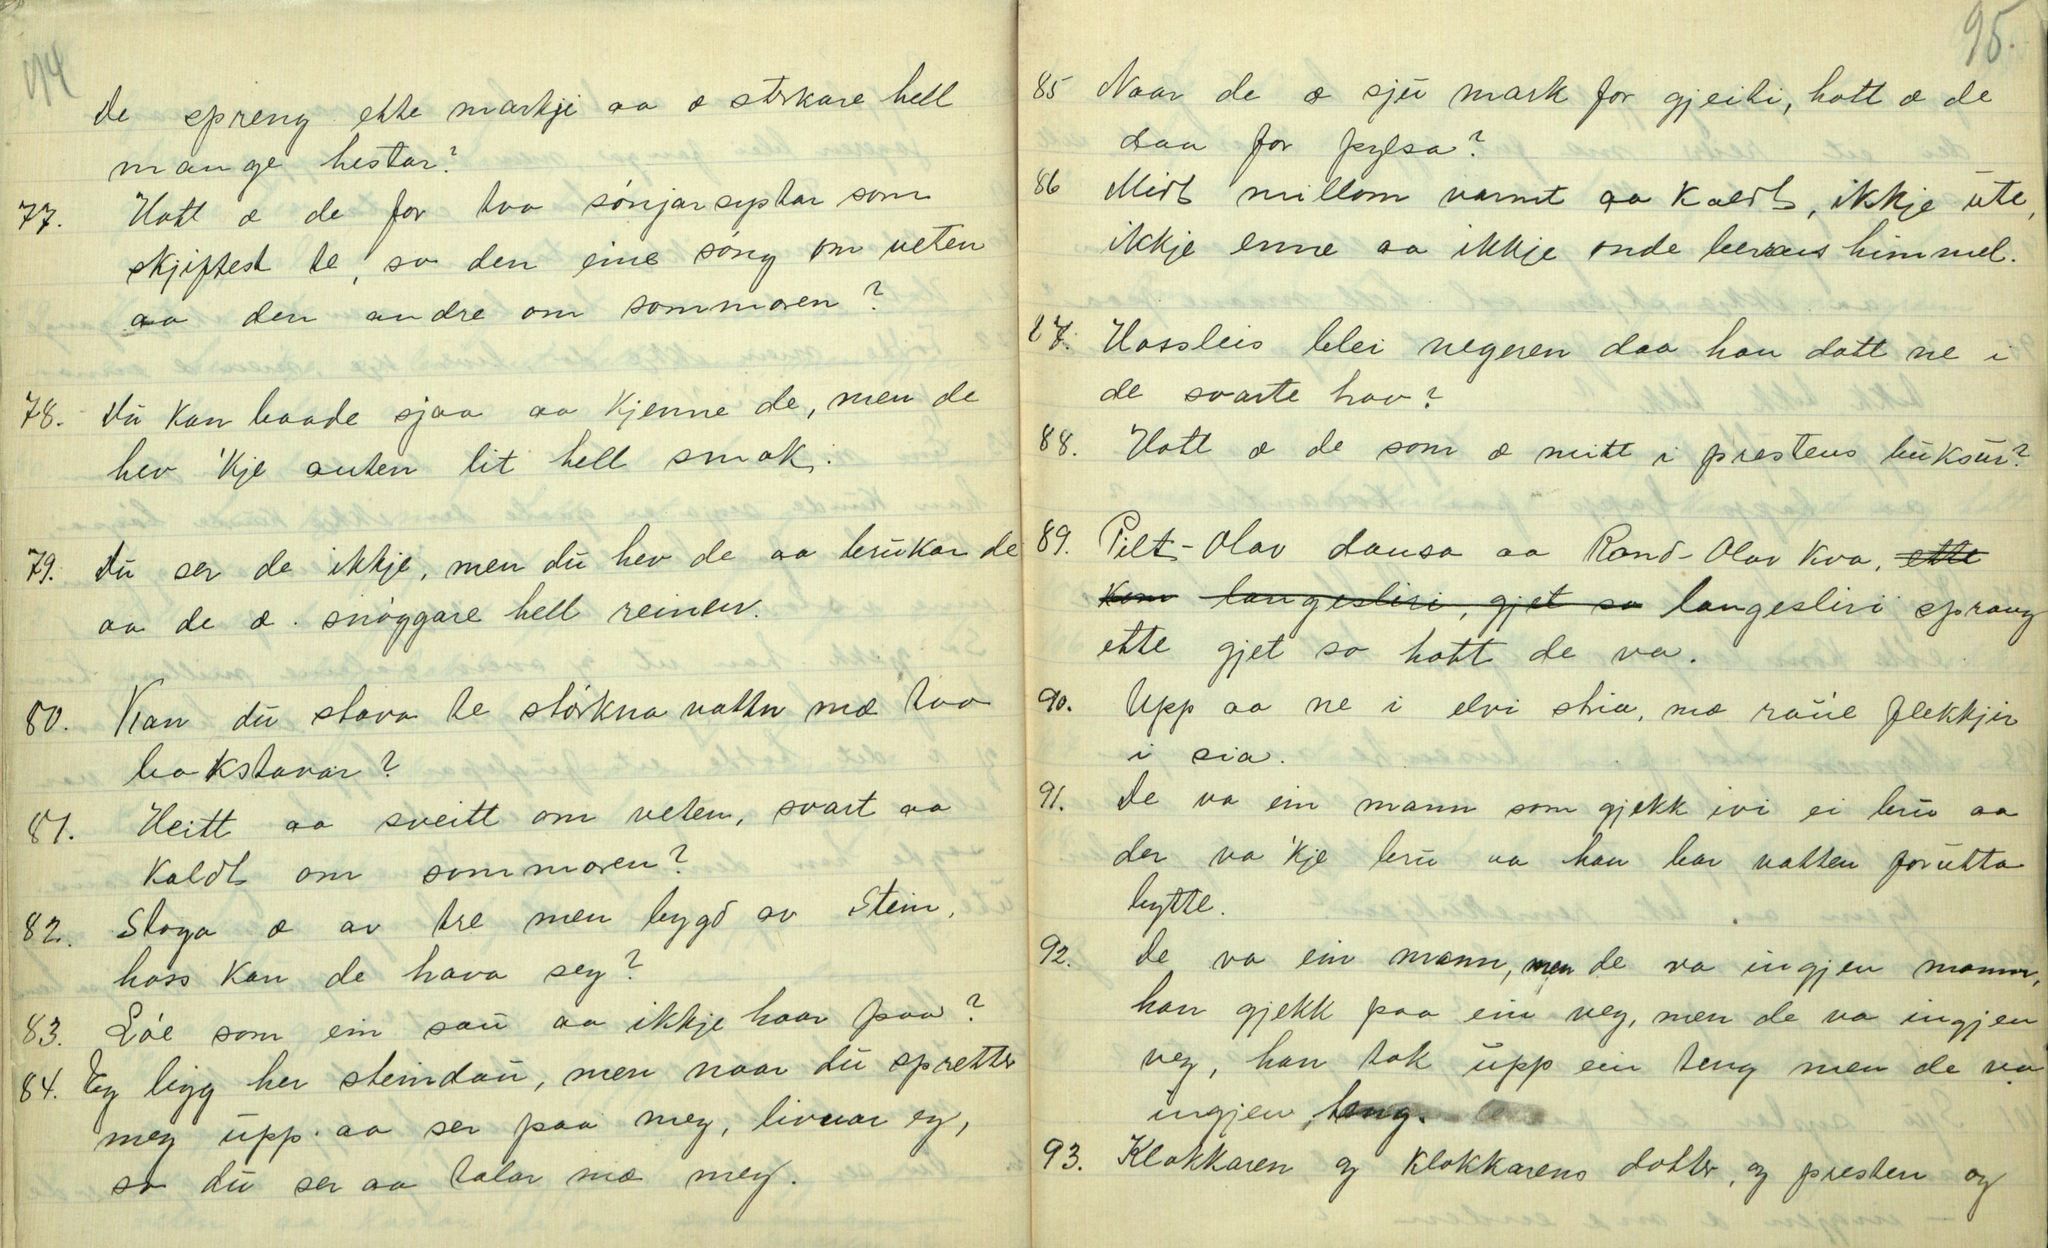 94
de spreng ette markji aa æ sterkare hell
mange hestar?
77. Hott æ de for two sóngarsystar som
skjiftest te, so den eine sóng om veten
aa den andre om sommoren?
78. Dú kan baade sjaa aa kjenne de, men de
hev 'kje anten lit hell smak.
79. Dú ser de ikkje, men dú hev de aa brúkar de
aa de æ snøggare hell reinen.
80. Kan dú stava te størkna vattn mæ two
bokstavar?
81. Heitt aa sveitt om veten, svart aa
kaldt om sommoren?
82. Stoga æ av tre men bygd av stein,
hoss kan de hava seg?
83. Lóe som ein saú aa ikkje haar paa?
84. Eg ligg her steindaú, men naar dú spretter
meg úpp aa ser paa meg, livnar eg,
so dú ser aa talar mæ meg.
95.
85 Naar de æ sjú mark for gjeiti, hott æ de
daa for pylsa?
86 Midt millom varmt aa kaldt, ikkje úte,
ikkje enne aa ikkje onde berans himmel.
87. Hossleis blei negeren daa han datt ne i
de svarte hav?
88. Hott æ de som æ mitt i prestens búksúr?
89. Pilt-Olav dansa aa Rand-Olav kva, ette
kom langesliri, gjet so langesliri sprang
ette gjet so hott de va.
90. Upp aa ne i elvi stria, mæ raúe flekkjir
i sia.
91. De va ein mann som gjekk ivi ei brú aa
der va 'kje brú aa han bar vatten forútta
bytte.
92. De va ein mann, men de va ingjen mann,
han gjekk paa ein veg, men de va ingjen
veg, han tok úpp ein teng men de va
ingjen teng.
93. Klokkaren og klokkarens dotter, og presten og